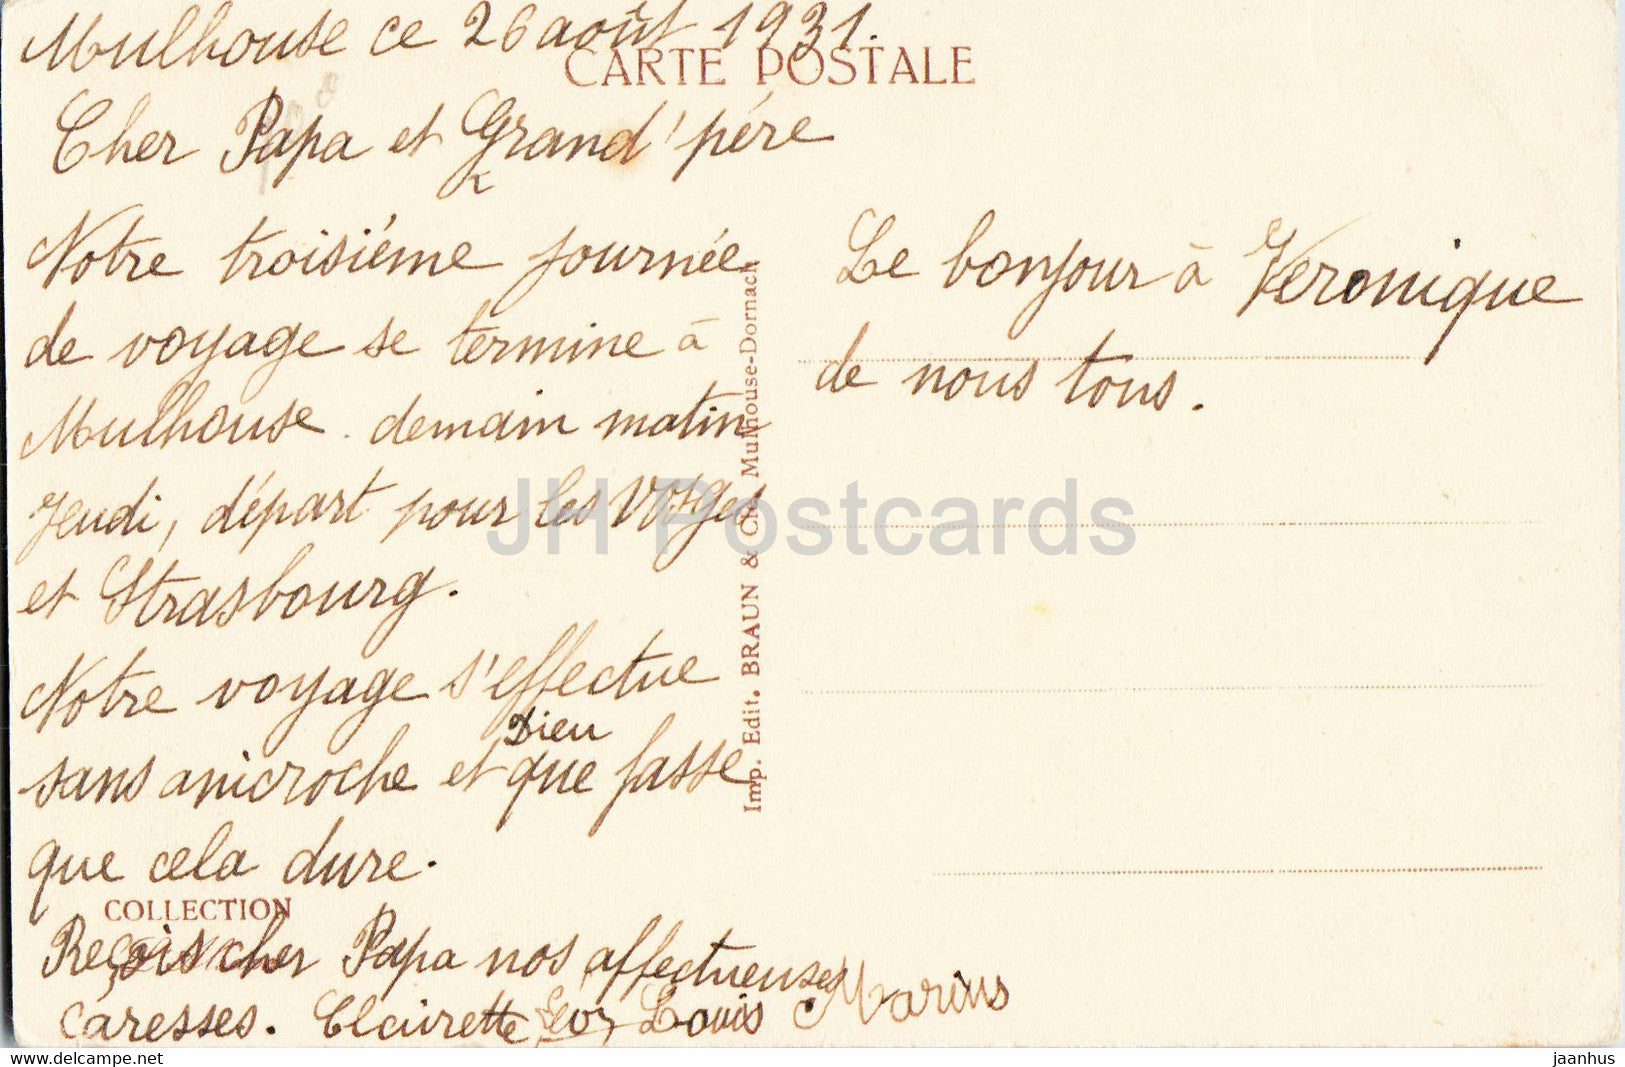 Mulhouse ce 26 août 1931.
CARTE POSTALE
Cher Papa et Grand'père
Notre troisième journée
de voyage se termine à
Mulhouse. demain matin
Jeudi, départ pour les Vosges
et Strasbourg.
Notre voyage s'effectue
Dieu
sans anicroche et que fasse
que cela dure.
COLLECTION
Reçois cher Papa nos affectueuses
caresses. Clairette Louis Marius
Imp. Edit. BRAUN & Cie, Mulhouse-Dornach
Le bonjour à Veronique
de nous tous.
JH Postcards
www.delcampe.net
jaanhus